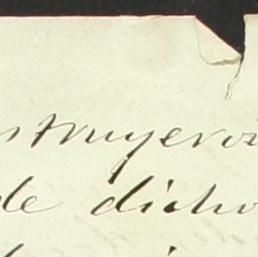 nstruyeron
de dicho